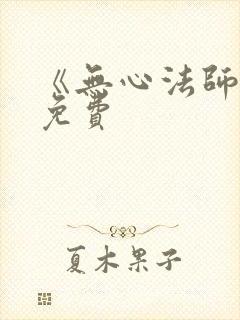 《無心法師
免費
夏木果子